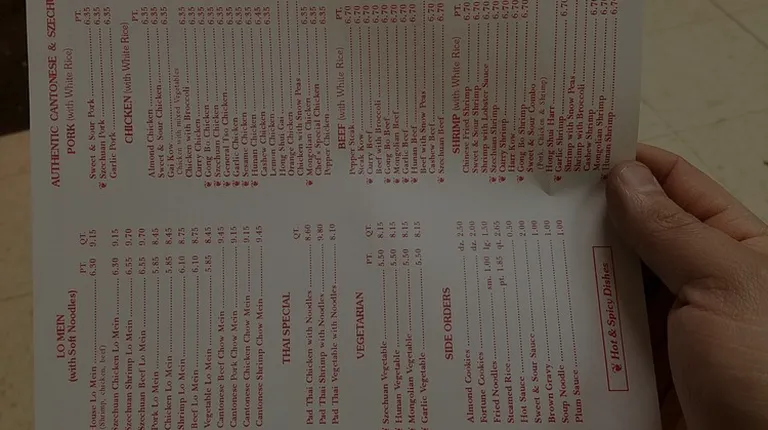 LO MEIN
(with Soft Noodles)
PT. QT.
House Lo Mein 6.30 9.15
(Shrimp, chicken, beef)
Szechuan Chicken Lo Mein 6.30 9.15
Szechuan Shrimp Lo Mein 6.55 9.70
Szechuan Beef Lo Mein 6.55 9.70
Pork Lo Mein 5.85 8.45
Chicken Lo Mein 5.85 8.45
Shrimp Lo Mein 6.10 8.75
Beef Lo Mein 6.10 8.75
Vegetable Lo Mein 5.85 8.45
Cantonese Beef Chow Mein 9.45
Cantonese Pork Chow Mein 9.15
Cantonese Chicken Chow Mein 9.15
Cantonese Shrimp Chow Mein 9.45
THAI SPECIAL
QT.
Pad Thai Chicken with Noodles 8.60
Pad Thai Shrimp with Noodles 9.80
Pad Thai Vegetable with Noodles 8.10
VEGETARIAN
PT. QT.
Szechuan Vegetable 5.50 8.15
Hunan Vegetable 5.50 8.15
Mongolian Vegetable 5.50 8.15
Garlic Vegetable 5.50 8.15
SIDE ORDERS
Almond Cookies dz. 2.50
Fortune Cookies dz. 2.00
Fried Noodles sm. 1.00 lg. 1.50
Steamed Rice pt. 1.85 qt. 2.65
Hot Sauce 0.50
Sweet & Sour Sauce 2.00
Brown Gravy 1.00
Soup Noodle 1.00
Plum Sauce 1.00
Hot & Spicy Dishes
AUTHENTIC CANTONESE & SZECH
PORK (with White Rice)
PT.
Sweet & Sour Pork 6.35
Szechuan Pork 6.35
Garlic Pork 6.35
CHICKEN (with White Rice)
Almond Chicken 6.35
Sweet & Sour Chicken 6.35
Gai Kow 6.35
Chicken with mixed Vegetables
Chicken with Broccoli 6.35
Curry Chicken 6.35
Gong Bo Chicken 6.35
Szechuan Chicken 6.35
General Tso Chicken
Garlic Chicken
Sesame Chicken
Hunan Chicken
Cashew Chicken
Lemon Chicken
Hong Shui Gai
Orange Chicken
Chicken with Snow Peas
Mongolian Chicken 6.35
Chef's Special Chicken
Pepper Chicken
BEEF (with White Rice)
PT.
Pepper Steak 6.70
Steak Kow 6.70
Curry Beef 6.70
Beef with Broccoli 6.70
Gong Bo Beef 6.70
Mongolian Beef 6.70
Garlic Beef 6.70
Hunan Beef 6.70
Beef with Snow Peas 6.70
Cashew Beef 6.70
Szechuan Beef 6.70
SHRIMP (with White Rice)
PT.
Chinese Fried Shrimp 6.70
Sweet & Sour Shrimp 6.70
Shrimp with Lobster Sauce 6.70
Szechuan Shrimp 6.70
Curry Shrimp 6.70
Harr Kow
Gong Bo Shrimp
Sweet & Sour Combo
(Pork, Chicken, & Shrimp)
Hong Shui Harr
Garlic Shrimp
Shrimp with Snow Peas
Shrimp with Broccoli
Cashew Shrimp
Mongolian Shrimp
Hunan Shrimp